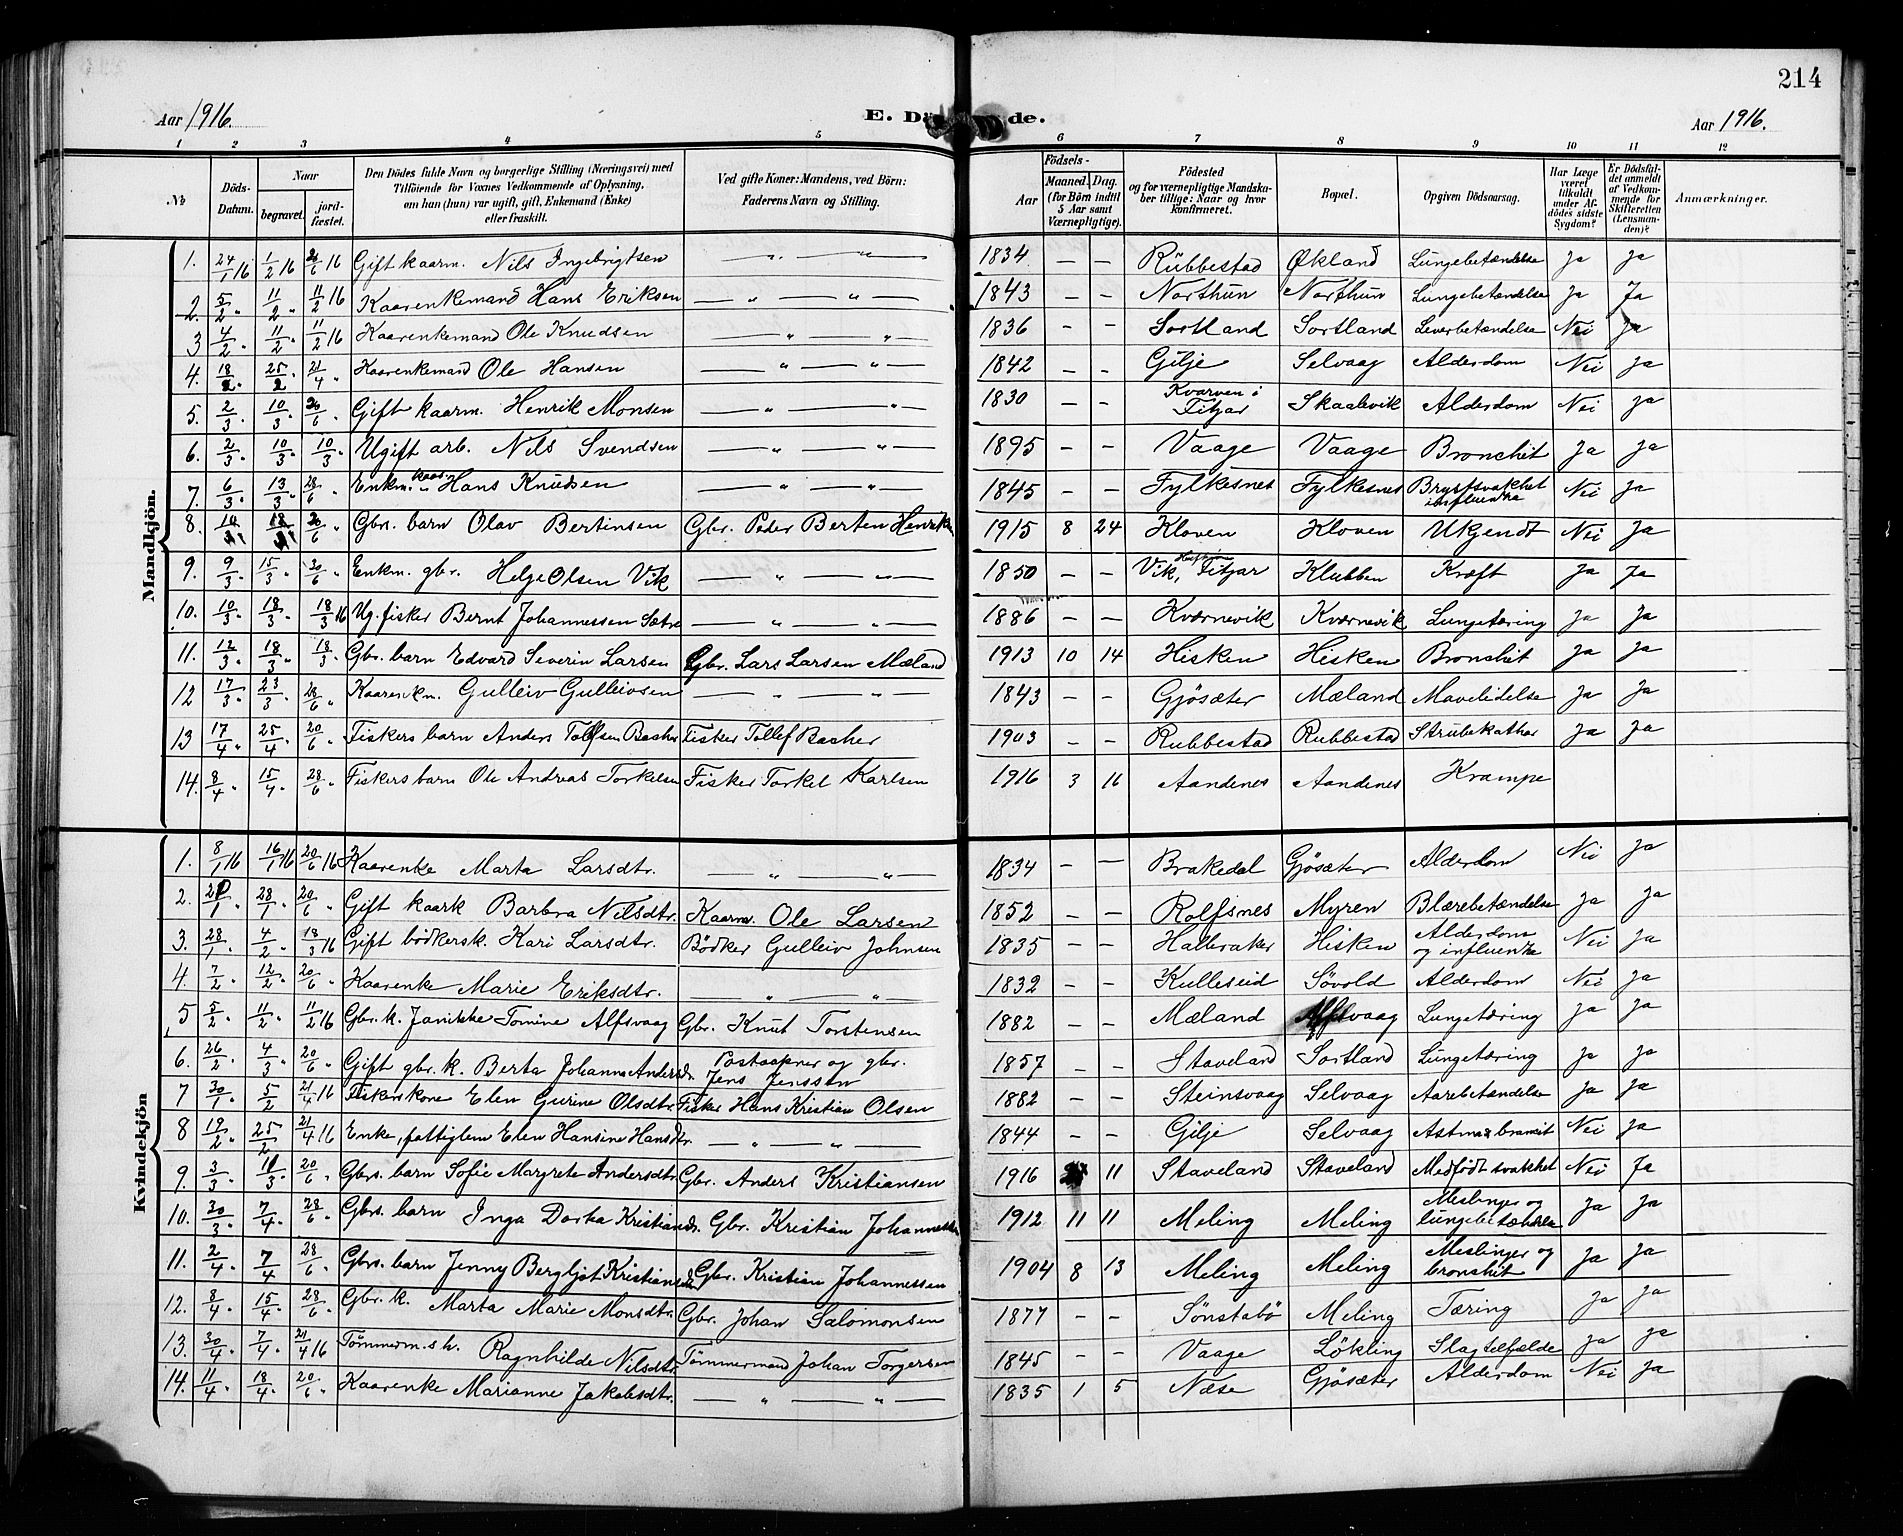 214
Aar 1916. E. Dö de. Aar 1916.
1 2 3 4 5 6 7 8 9 10 11 12
No
Döds-Datum.
Naar
begravet.
jord-fæstet.
Den Dödes fulde Navn og borgerlige Stilling (Næringsvei) med
Tilföiende for Voxnes Vedkommende af Oplysning,
om han (hun) var ugift, gift, Enkemand (Enke)
eller fraskilt.
Ved gifte Koner: Mandens, ved Börn:
Faderens Navn og Stilling.
Födsels-
Aar
Maaned. Dag.
(for Börn indtil
5 Aar samt
Værnepligtige).
Födested
og for værnepligtige Mandska-
ber tillige: Naar og hvor
konfirmeret.
Bopæl.
Opgiven Dödsaarsag.
Har Læge
været
tilkaldt
under Af-
dödes sidste
Sygdom?
Er Dödsfal-
det anmeldt
af Vedkom-
mende for
Skifteretten
(Lensman-
den)?
Anmærkninger.
Mandkjön.
1. 24/1 16 1/2 16 20/6 16 Gift kaarm. Nils Ingebrigtsen — " — " — 1834 — — Rübbestad Økland Lungebetændelse Ja Ja
2. 5/2 " 11/2 " 11/2 16 Kaarenkemand Hans Eriksen — " — " — 1843 — — Northun Northun Lungebetændelse Ja Ja
3 4/2 " 11/2 " 11/2 16 Kaarenkemand Ole Knudsen — " — " — 1836 — — Sortland Sortland Leverbetændelse Nei Ja
4. 18/2 " 25/2 21/4 " Kaarenkemand Ole Hansen — " — " — 1842 — — Gilje Selvaag Alderdom Nei Ja
5. 2/3 " 10/3 " 20/6 " Gift kaarm. Henrik Monsen — " — " — 1830 — — Kvarven i Fitjar Skaalevik Alderdom Nei Ja
6. 2/3 " 10/3 10/3 " Ugift arb. Nils Svendsen — " — " — 1895 — — Vaage Vaage Bronchit Ja Ja
7. 6/3 " 13/3 " 28/6 " Enkm. kaar " Hans Knudsen — " — " — 1845 — — Fylkesnes Fylkesnes Brystsvakhet influenza Nei Ja
8. 18 20/6 " Gbr. barn Olav Bertinsen Gbr. Peder Berten Henrik 1915 8 24 Kloven Kloven Ukjendt Nei Ja
9. 9/3 " 15/3 " 20/6 " Enkm. gbr. Helge Olsen Vik — " — " — 1850 — — Vik, Fitjar Klubben Kræft Ja Ja
10. 10/3 " 18/3 " 18/3 16 Ug. fisker Bernt Johannessen Sætre — " — " — 1886 — — Kværnevik Kværnevik Lungetæring Ja Ja
11. 12/3 " 18/3 " 18/3 " Gbr. barn Edvard Severin Larsen Gbr. Lars Larsen Mæland 1913 10 14 Hisken Hisken Bronchit Ja Ja
12 17/3 " 23/3 " 28/6 " Kaarenkm. Gulleiv Gulleivsen — " — " — 1843 — — Gjøsæter Mæland Mavelidelse Ja Ja
13 17/4 " 25/4 " 20/6 " Fiskers barn Anders Tollefsen Bacher Fisker Tollef Bacher 1903 — — Rubbestad Rubbestad Strubekathar Ja Ja
14. 8/4 " 15/4 " 28/6 " Fiskers barn Ole Andreas Torkelsen Fisker Torkel Karlsen 1916 3 16 Aandenes Aandenes Krampe
Kvindekjön
1. 8/1 16 16/1 16 20/6 16 Kaarenke Marta Larsdtr. — " — " — 1834 — — Brakedal Gjøsæter Alderdom Nei Ja
2. 28/1 " 20/6 " Gift kaark Barbra Nilsdtr. Kaarm. Ole Larsen 1852 — — Rolfsnes Myren Blærebetændelse Ja Ja
3. 28/1 " 4/2 " 18/3 16 Gift bödkersk. Kari Larsdtr. Bödker Gulleiv Johnsen 1835 — — Halbraker Hisken Alderdom og influenza Nei Ja
4. 7/2 " 12/2 " 20/6 " Kaarenke Marie Eriksdtr. — " — " — 1832 — — Kulleseid Søvold Alderdom Nei Ja
5 5/2 " 11/2 " 11/2 16 Gbr. k. Janikke Tomine Alfsvaag Gbr. Knut Torstensen 1882 — — Mæland Alfsvaag Lungetæring Ja Ja
6. 26/2 " 4/3 " 20/6 " Gift gbr. k. Berta Johanne Andersdr. Postaapner og gbr. Jens Jenssen 1857 — — Staveland Sortland Lungetæring Ja Ja
7 30/1 " 5/2 21/4 16 Fiskerskone Elen Gurine Olsdtr. Fisker Hans Kristian Olsen 1882 — — Steinsvaag Selvaag Aarebetændelse Ja Ja
8 19/2 " 25/2 21/4 16 Enke, fattiglem Elen Hansine Hansdtr. — " — " — 1844 — — Gilje Selvaag Astma Nei Ja
9. 3/3 " 11/3 " 20/6 " Gbrs. barn Sofie Margrete Andersdtr. Gbr. Anders Kristiansen 1916 11 Staveland Staveland Medfödt svakhet Nei Ja
10. 30/3 " 7/4 " 28/6 " Gbrs. barn Inga Dorka Kristiansdr. Gbr. Kristian Johannessen 1912 11 11 Meling Meling Meslinger og lungebetændelse Ja Ja
11. 2/4 " 7/4 28/6 " Gbrs. barn Jenny Bergljot Kristiansdtr Gbr. Kristian Johannessen 1904 8 13 Meling Meling Meslinger og bronchit Ja Ja
12. 8/4 " 15/4 " 28/6 " Gbr. k. Marta Marie Monsdtr. Gbr. Johan Salomonsen 1877 — — Sönstabö Meling Tæring Ja Ja
13. 30/4 " 7/4 " 21/4 16 Tømmerm.s h. Ragnhilde Nilsdtr. Tømmermand Johan Torgersen 1845 — — Vaage Løkling Slagtilfælde Ja Ja
14. 11/4 " 18/4 " 20/6 " Kaarenke Marianne Jakobsdtr. — " — " — 1835 1 5 Næse Gjøsæter Alderdom Nei Ja